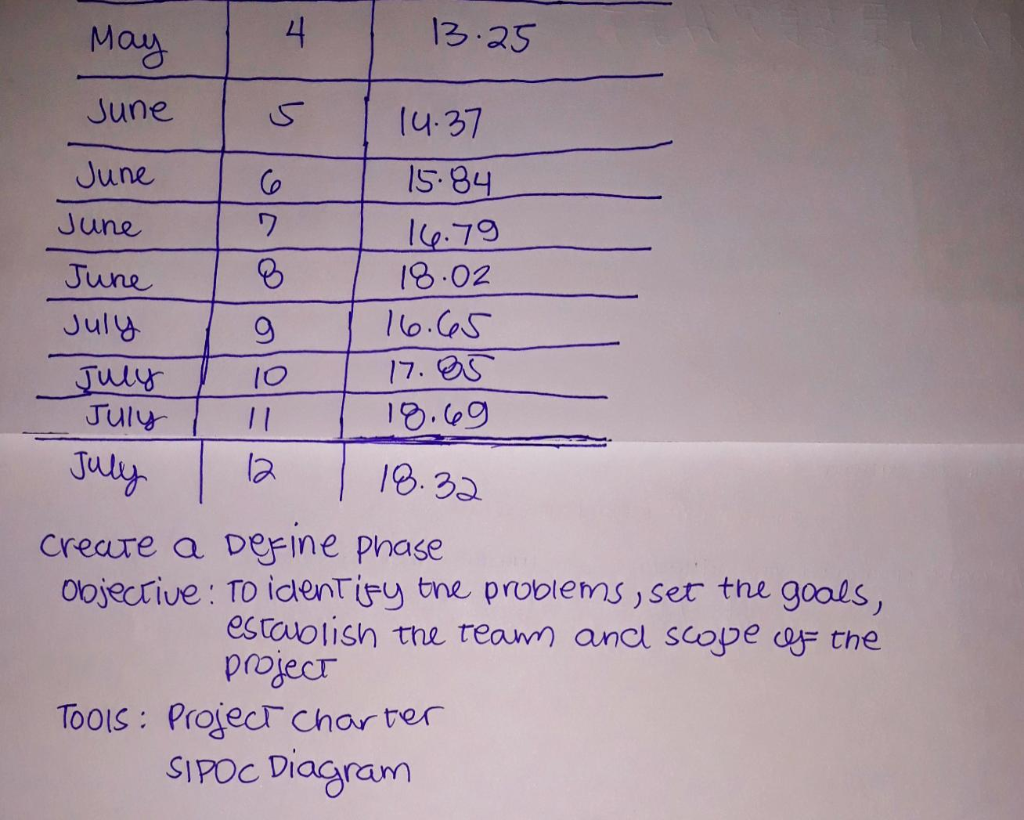 May 4 13.25
June 5 14.37
June 6 15.84
June 7 16.79
June 8 18.02
July 9 16.65
July 10 17.85
July 11 18.69
July 12 18.32
Create a Define phase
Objective: To identify the problems, set the goals,
establish the team and scope of the
project
Tools: Project charter
SIPOC Diagram